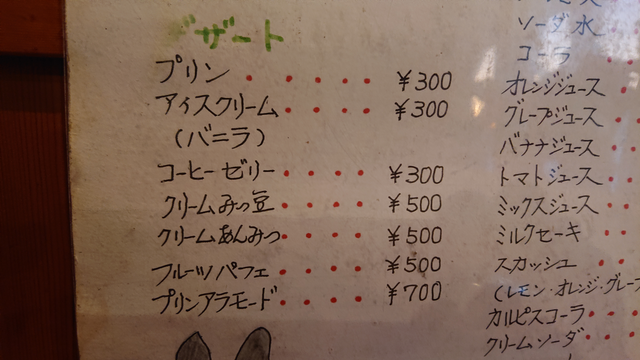 デザート
プリン ・・・・・ ¥300
アイスクリーム・・・・ ¥300
(バニラ)
コーヒーゼリー・・・・ ¥300
クリームみつ豆・・・・ ¥500
クリームあんみつ・・・・ ¥500
フルーツパフェ・・・・ ¥500
プリンアラモード・・・・ ¥700
ソーダ水
コーラ
オレンジジュース・
グレープジュース・・
バナナジュース・・
トマトジュース・・
ミックスジュース・・
ミルクセーキ・・
スカッシュ・・
(レモン・オレンジ・グレープ
カルピスコーラ・・
クリームソーダ・・